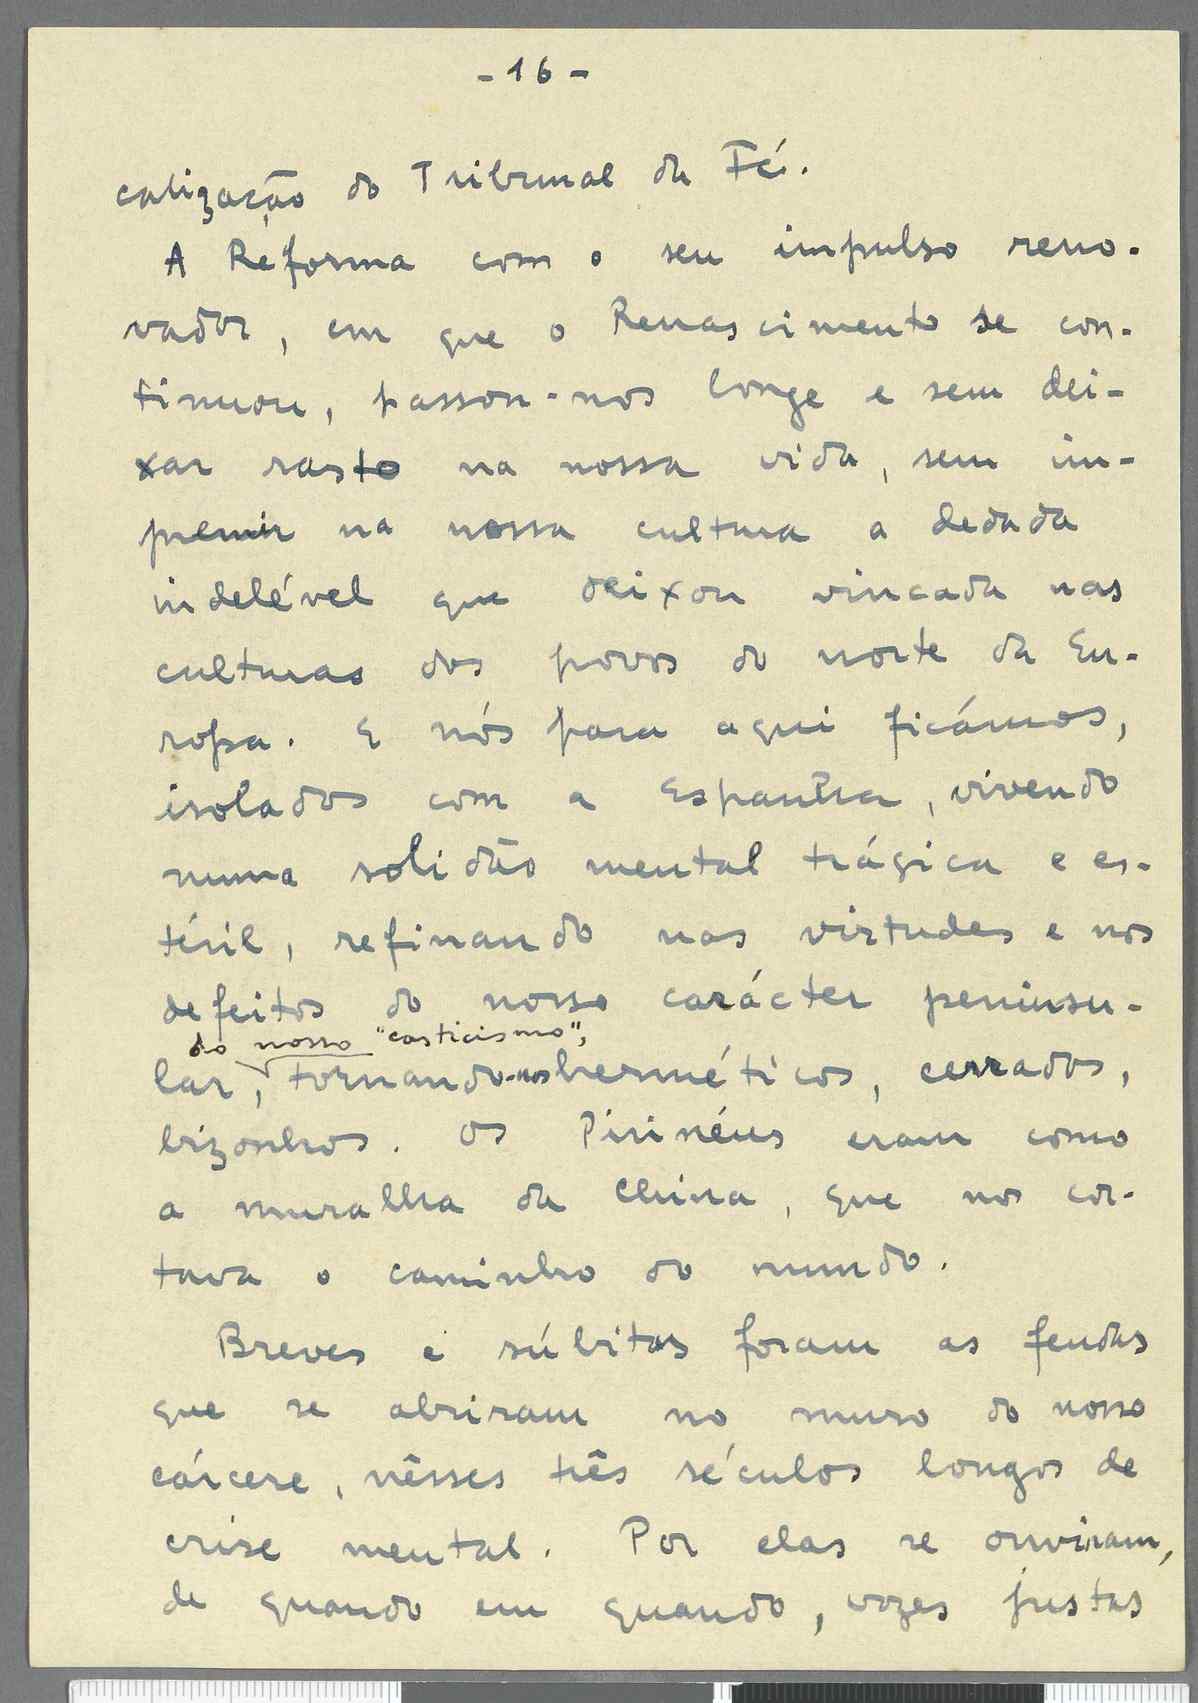 - 16 -
calização do Tribunal da Fé.
A Reforma com o seu impulso reno-
vador, em que o Renascimento se con-
tinuou, passou-nos longe e sem dei-
xar rasto na nossa vida, sem im-
premir na nossa cultura a dedada
indelével que deixou vincada nas
culturas dos povos do norte da Eu-
ropa. E nós para aqui ficámos,
isolados com a Espanha, vivendo
numa solidão mental trágica e es-
téril, refinando nas virtudes e nos
defeitos do nosso carácter peninsu-
do nosso "casticismo",
lar, tornando-nos herméticos, cerrados,
bizonhos. Os Pirinéus eram como
a muralha da China, que nos cor-
tava o caminho do mundo.
Breves e súbitas foram as fendas
que se abriram no muro do nosso
cárcere, nêsses três séculos longos de
crise mental. Por elas se ouviram,
de quando em quando, vozes justas